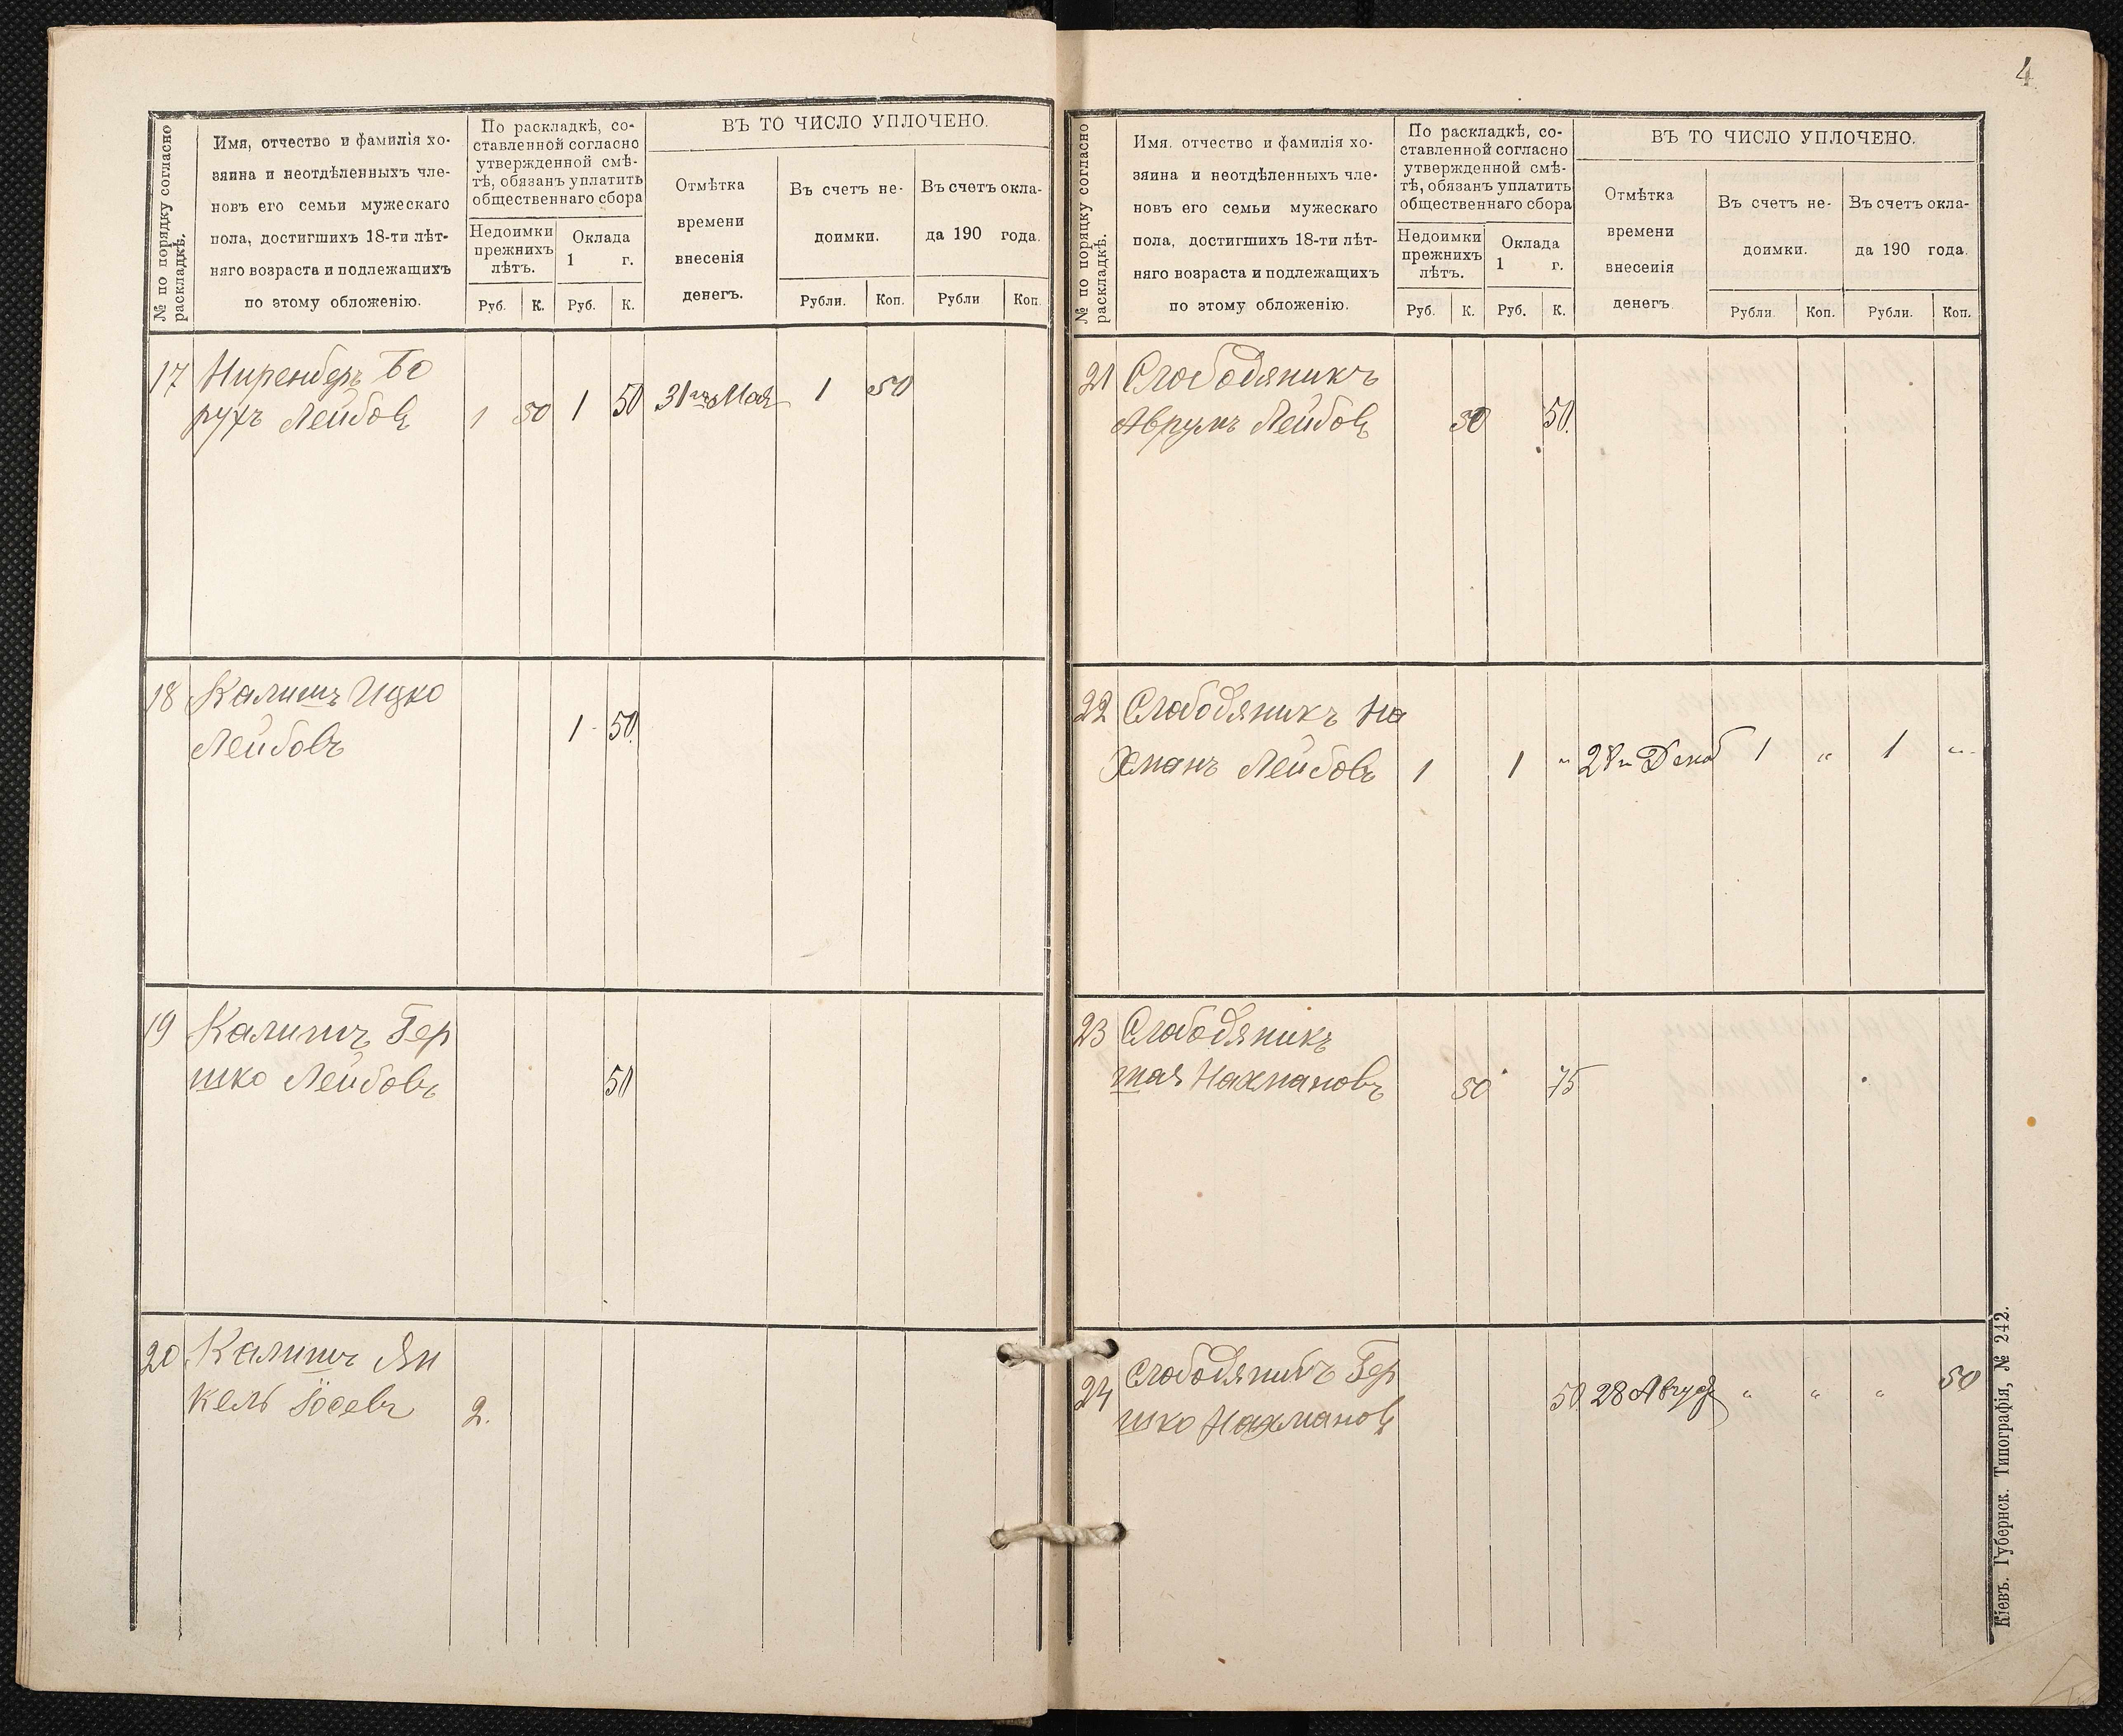 № по порядку согласно
раскладкѣ.
Имя, отчество и фамилія хо-
зяина и неотдѣленныхъ чле-
новъ его семьи мужескаго
пола, достигшихъ 18-ти лѣт-
няго возраста и подлежащихъ
по этому обложенію.
По раскладкѣ, со-
ставленной согласно
утвержденной смѣ-
тѣ, обязанъ уплатить
общественнаго сбора
Недоимки
прежнихъ
лѣтъ.
Оклада
1 г.
Руб. К. Руб. К.
ВЪ ТО ЧИСЛО УПЛОЧЕНО.
Отмѣтка
времени
внесенія
денегъ.
Въ счетъ не-
доимки.
Въ счетъ окла-
да 190 года.
Рубли. Коп. Рубли Коп.
17 Ниренберъ Бо
рухъ Лейбовъ 1 50 1 50 31го Мая 1 50
18 Калишъ Ицко
Лейбовъ 1 50
19 Калишъ Гер
шко Лейбовъ 50
20 Калишъ Ян
кель Іосевъ 2.
4
№ по порядку согласно
раскладкѣ.
Имя. отчество и фамилія хо-
зяина и неотдѣленныхъ чле-
новъ его семьи мужескаго
пола, достигшихъ 18-ти лѣт-
няго возраста и подлежащихъ
по этому обложенію.
По раскладкѣ, со-
ставленной согласно
утвержденной смѣ-
тѣ, обязанъ уплатить
общественнаго сбора
Недоимки
прежнихъ
лѣтъ.
Оклада
1 г.
Руб. К. Руб. К.
ВЪ ТО ЧИСЛО УПЛОЧЕНО.
Отмѣтка
времени
внесенія
денегъ
Въ счетъ не-
доимки.
Въ счетъ окла-
да 190 года.
Рубли. Коп. Рубли. Коп.
21 Слободяникъ
Аврумъ Лейбовъ 50 50.
22 Слободяникъ На
хманъ Лейбовъ 1 1 " Декаб 1 " 1 "
23 Слободяникъ
Нахмановъ 50 75
24 Слободяникъ Гер
шко Нахмановъ 50. 28 Август " " " 50
Кіевъ. Губернск. Типографія, № 242.